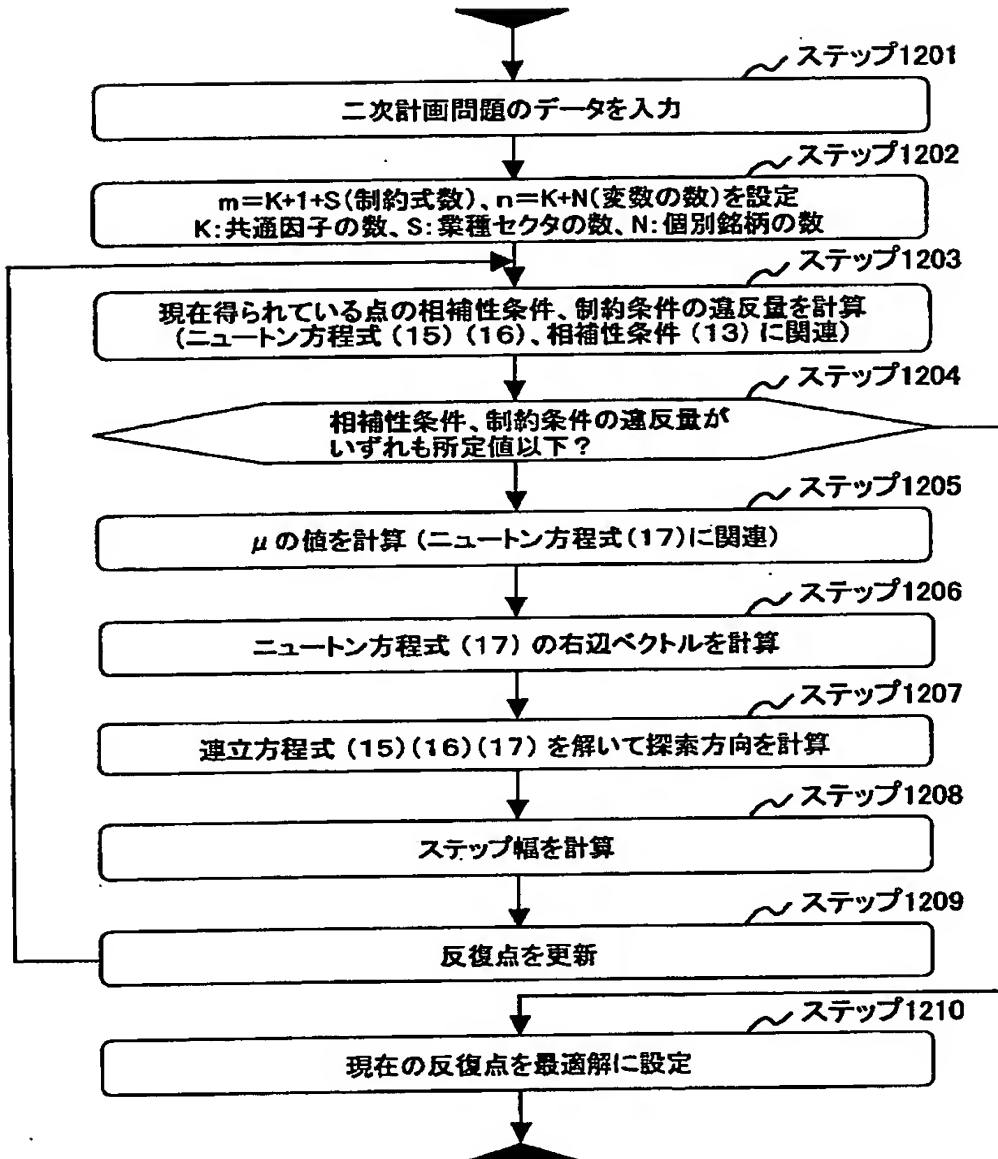 ステップ1201
二次計画問題のデータを入力
ステップ1202
m=K+1+S(制約式数)、n=K+N(変数の数)を設定
K:共通因子の数、S:業種セクタの数、N:個別銘柄の数
ステップ1203
現在得られている点の相補性条件、制約条件の違反量を計算
(ニュートン方程式(15)(16)、相補性条件(13)に関連)
ステップ1204
相補性条件、制約条件の違反量が
いずれも所定値以下?
ステップ1205
μの値を計算(ニュートン方程式(17)に関連)
ステップ1206
ニュートン方程式(17)の右辺ベクトルを計算
ステップ1207
連立方程式(15)(16)(17)を解いて探索方向を計算
ステップ1208
ステップ幅を計算
ステップ1209
反復点を更新
ステップ1210
現在の反復点を最適解に設定